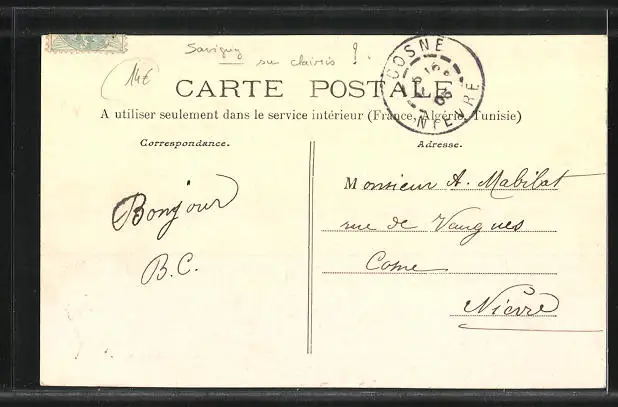 Savigny sur clairis ?
14€
CARTE POSTALE
A utiliser seulement dans le service intérieur (France, Algérie, Tunisie)
COSNE
NIEVRE
Correspondance.
Adresse.
Bonjour
B.C.
Monsieur A. Mabilat
rue de Vaugues
Cosne
Nièvre